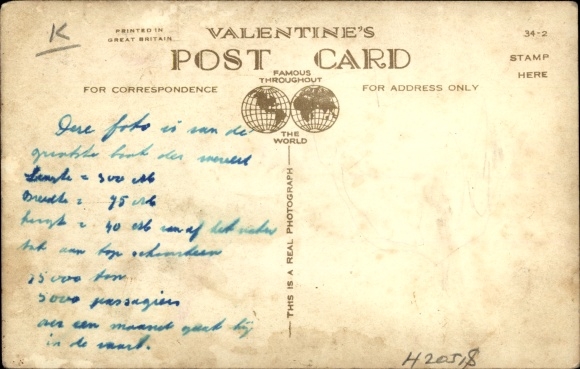 K
PRINTED IN
GREAT BRITAIN
VALENTINE'S
34-2
POST CARD
STAMP
HERE
FAMOUS
THROUGHOUT
THE
WORLD
FOR CORRESPONDENCE
FOR ADDRESS ONLY
THIS IS A REAL PHOTOGRAPH
Deze foto is van de
grootste boot der wereld
Lengte = 300 M
Breedte = 75 M
hoogte = 40 M vanaf het water
tot aan top schoorsteen
75000 ton
5000 passagiers
over een maand gaat hij
in de vaart.
H20518